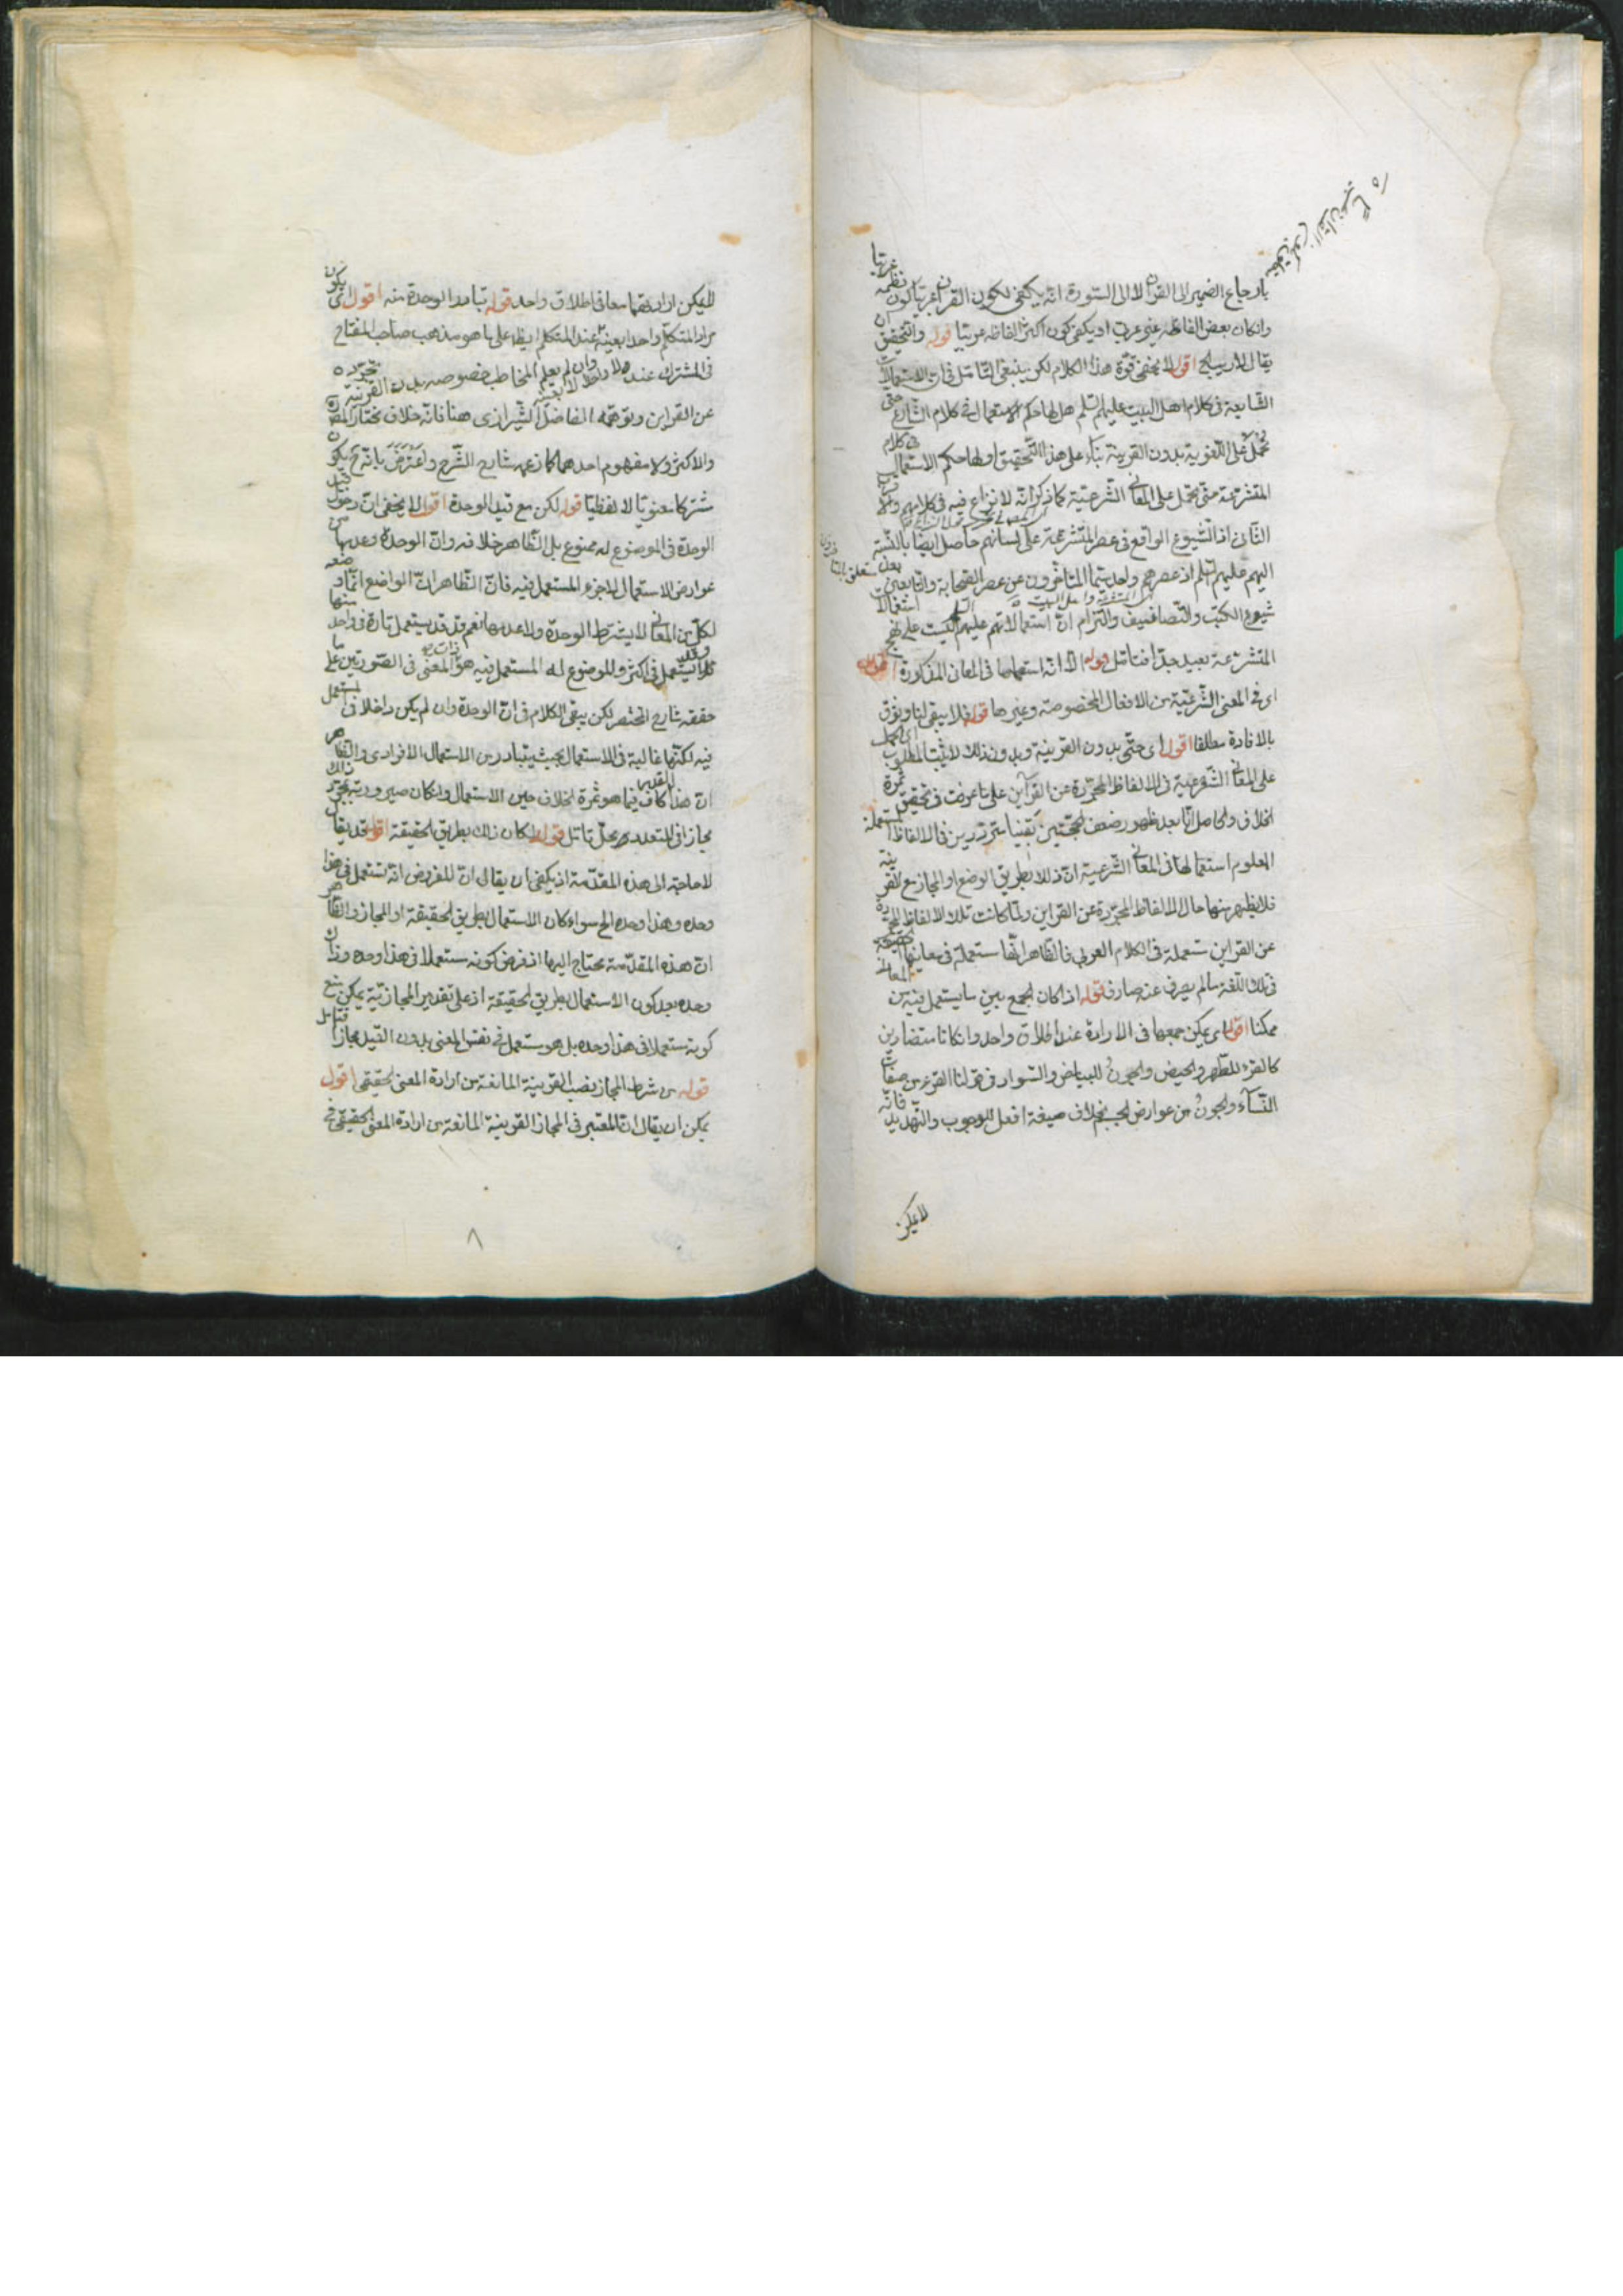 بارجاع الضمير الى القرآن لا الى السورة انه يكفى لكون القرآن عربيا كون نظمه عربيا
وان كان بعض الفاظه غير عربى او يكفى كون اكثر الفاظه عربيا قوله والتحقيق ان
يقال لا ريب الخ اقول لا يخفى قوة هذا الكلام لكن ينبغى التأمل فى ان الاستعمالات
الشايعة فى كلام اهل البيت عليهم السلم هل لها حكم الاستعمال فى كلام الشارع حتى
تحمل على اللغوية بدون القرينة بناء على هذا التحقيق او لها حكم الاستعمال فى كلام
المتشرعة حتى تحمل على المعانى الشرعية كما ذكر انه لا نزاع فيه فى كلامهم
الثانى اذ الشيوع الواقع فى عصر المتشرعة على لسانهم حاصل ايضا بالنسبة
اليهم عليهم السلم اذ عصرهم واحد سيما المتأخرون عن عصر الصحابة والتابعين
شيوع الكتب والتصانيف والتزام ان استعمالاتهم عليهم السلم ليست على نهج استعمالات
المتشرعة بعيد جدا فتأمل قوله الا انه استعملها فى المعانى المذكورة اقول
اى فى المعنى الشرعية من الافعال المخصوصة وغيرها قوله فلا يبقى لنا وثوق
بالافادة مطلقا اقول اى حتى بدون القرينة وبدون ذلك لا يثبت المطلوب اى الحمل
على المعانى الشرعية فى الالفاظ المجردة عن القرآين على ما عرفت فى تحقيق ثمرة
الخلاف والحاصل انا بعد ظهور ضعف الحجتين بقينا مترددين فى الالفاظ المستعملة
المعلوم استعمالها فى المعانى الشرعية ان ذلك بطريق الوضع او المجاز مع القرينة
فلا يظهر منها حال الالفاظ المجردة عن القراين ولما كانت تلك الالفاظ المجردة
عن القراين مستعملة فى الكلام العربى فالظاهر انها مستعملة فى معانيها الحقيقية
فى تلك اللغة ما لم يصرف عنه صارف قوله اذا كان الجمع بين ما يستعمل فيه من المعانى
ممكنا اقول اى يمكن جمعها فى الارادة عند اطلاق واحد وان كانا متضادين
كالقرء للطهر والحيض والجون للبياض والسواد فى قولنا القرء من صفات
النساء والجون من عوارض الجسم بخلاف صيغة افعل للوجوب والتهديد فانه
لا يمكن
لا يمكن ارادتهما معا فى اطلاق واحد قوله تبادر الوحدة منه اقول اى يكون
مراد المتكلم واحدا بعينه عند المتكلم ايضا على ما هو مذهب صاحب المفتاح
فى المشترك عند وان لم يعلم المخاطب خصوصه بدون القرينة
عن القراين وتوهمه الفاضل الشيرازى هنا فانه خلاف مختار المص
والاكثر ولا مفهوم احدهما كما زعمه شارح الشرح واعترض بانه ح يكون
مشتركا معنويا لا لفظيا قوله لكن مع قيد الوحدة اقول لا يخفى ان دخول قيد
الوحدة فى الموضوع له ممنوع بل الظاهر خلافه وان الوحدة وعدمها من
عوارض الاستعمال لا جزء المستعمل فيه فان الظاهر ان الواضع انما وضعه
لكل من المعانى لا بشرط الوحدة ولا عدمها نعم قد يستعمل تارة فى واحد منها
وقد يستعمل فى اكثر والموضوع له المستعمل فيه هو ذات المعنى فى الصورتين على ما
حققه شارح المختصر لكن يبقى الكلام فى ان الوحدة وان لم يكن داخلا فى المستعمل
فيه لكنها غالبة فى الاستعمال بحيث يتبادر من الاستعمال الافرادى والظاهر
ان هذا القدر كاف فيما هو ثمرة الخلاف حين الاستعمال وان كان صيرورته بمجرد ذلك
مجازا فى المتعدد محل تأمل قوله لكان ذلك بطريق الحقيقة اقول قد يقال
لا حاجة الى هذه المقدمة اذ يكفى ان يقال ان المفروض انه تستعمل فى هذا
وحده وهذا وحده الخ سواء كان الاستعمال بطريق الحقيقة او المجاز والظاهر
ان هذه المقدمة محتاج اليها اذ فرض كونه مستعملا فى هذا وحده وذاك
وحده بعد كون الاستعمال بطريق الحقيقة اذ على تقدير المجازية يمكن منع
كونه مستعملا فى هذا وحده بل هو مستعمل فى نفس المعنى بدون القيد مجازا فتامل
قوله من شرط المجاز نصب القرينة المانعة من ارادة المعنى الحقيقى اقول
يمكن ان يقال ان المعتبر فى المجاز القرينة المانعة من ارادة المعنى الحقيقى فى
٨